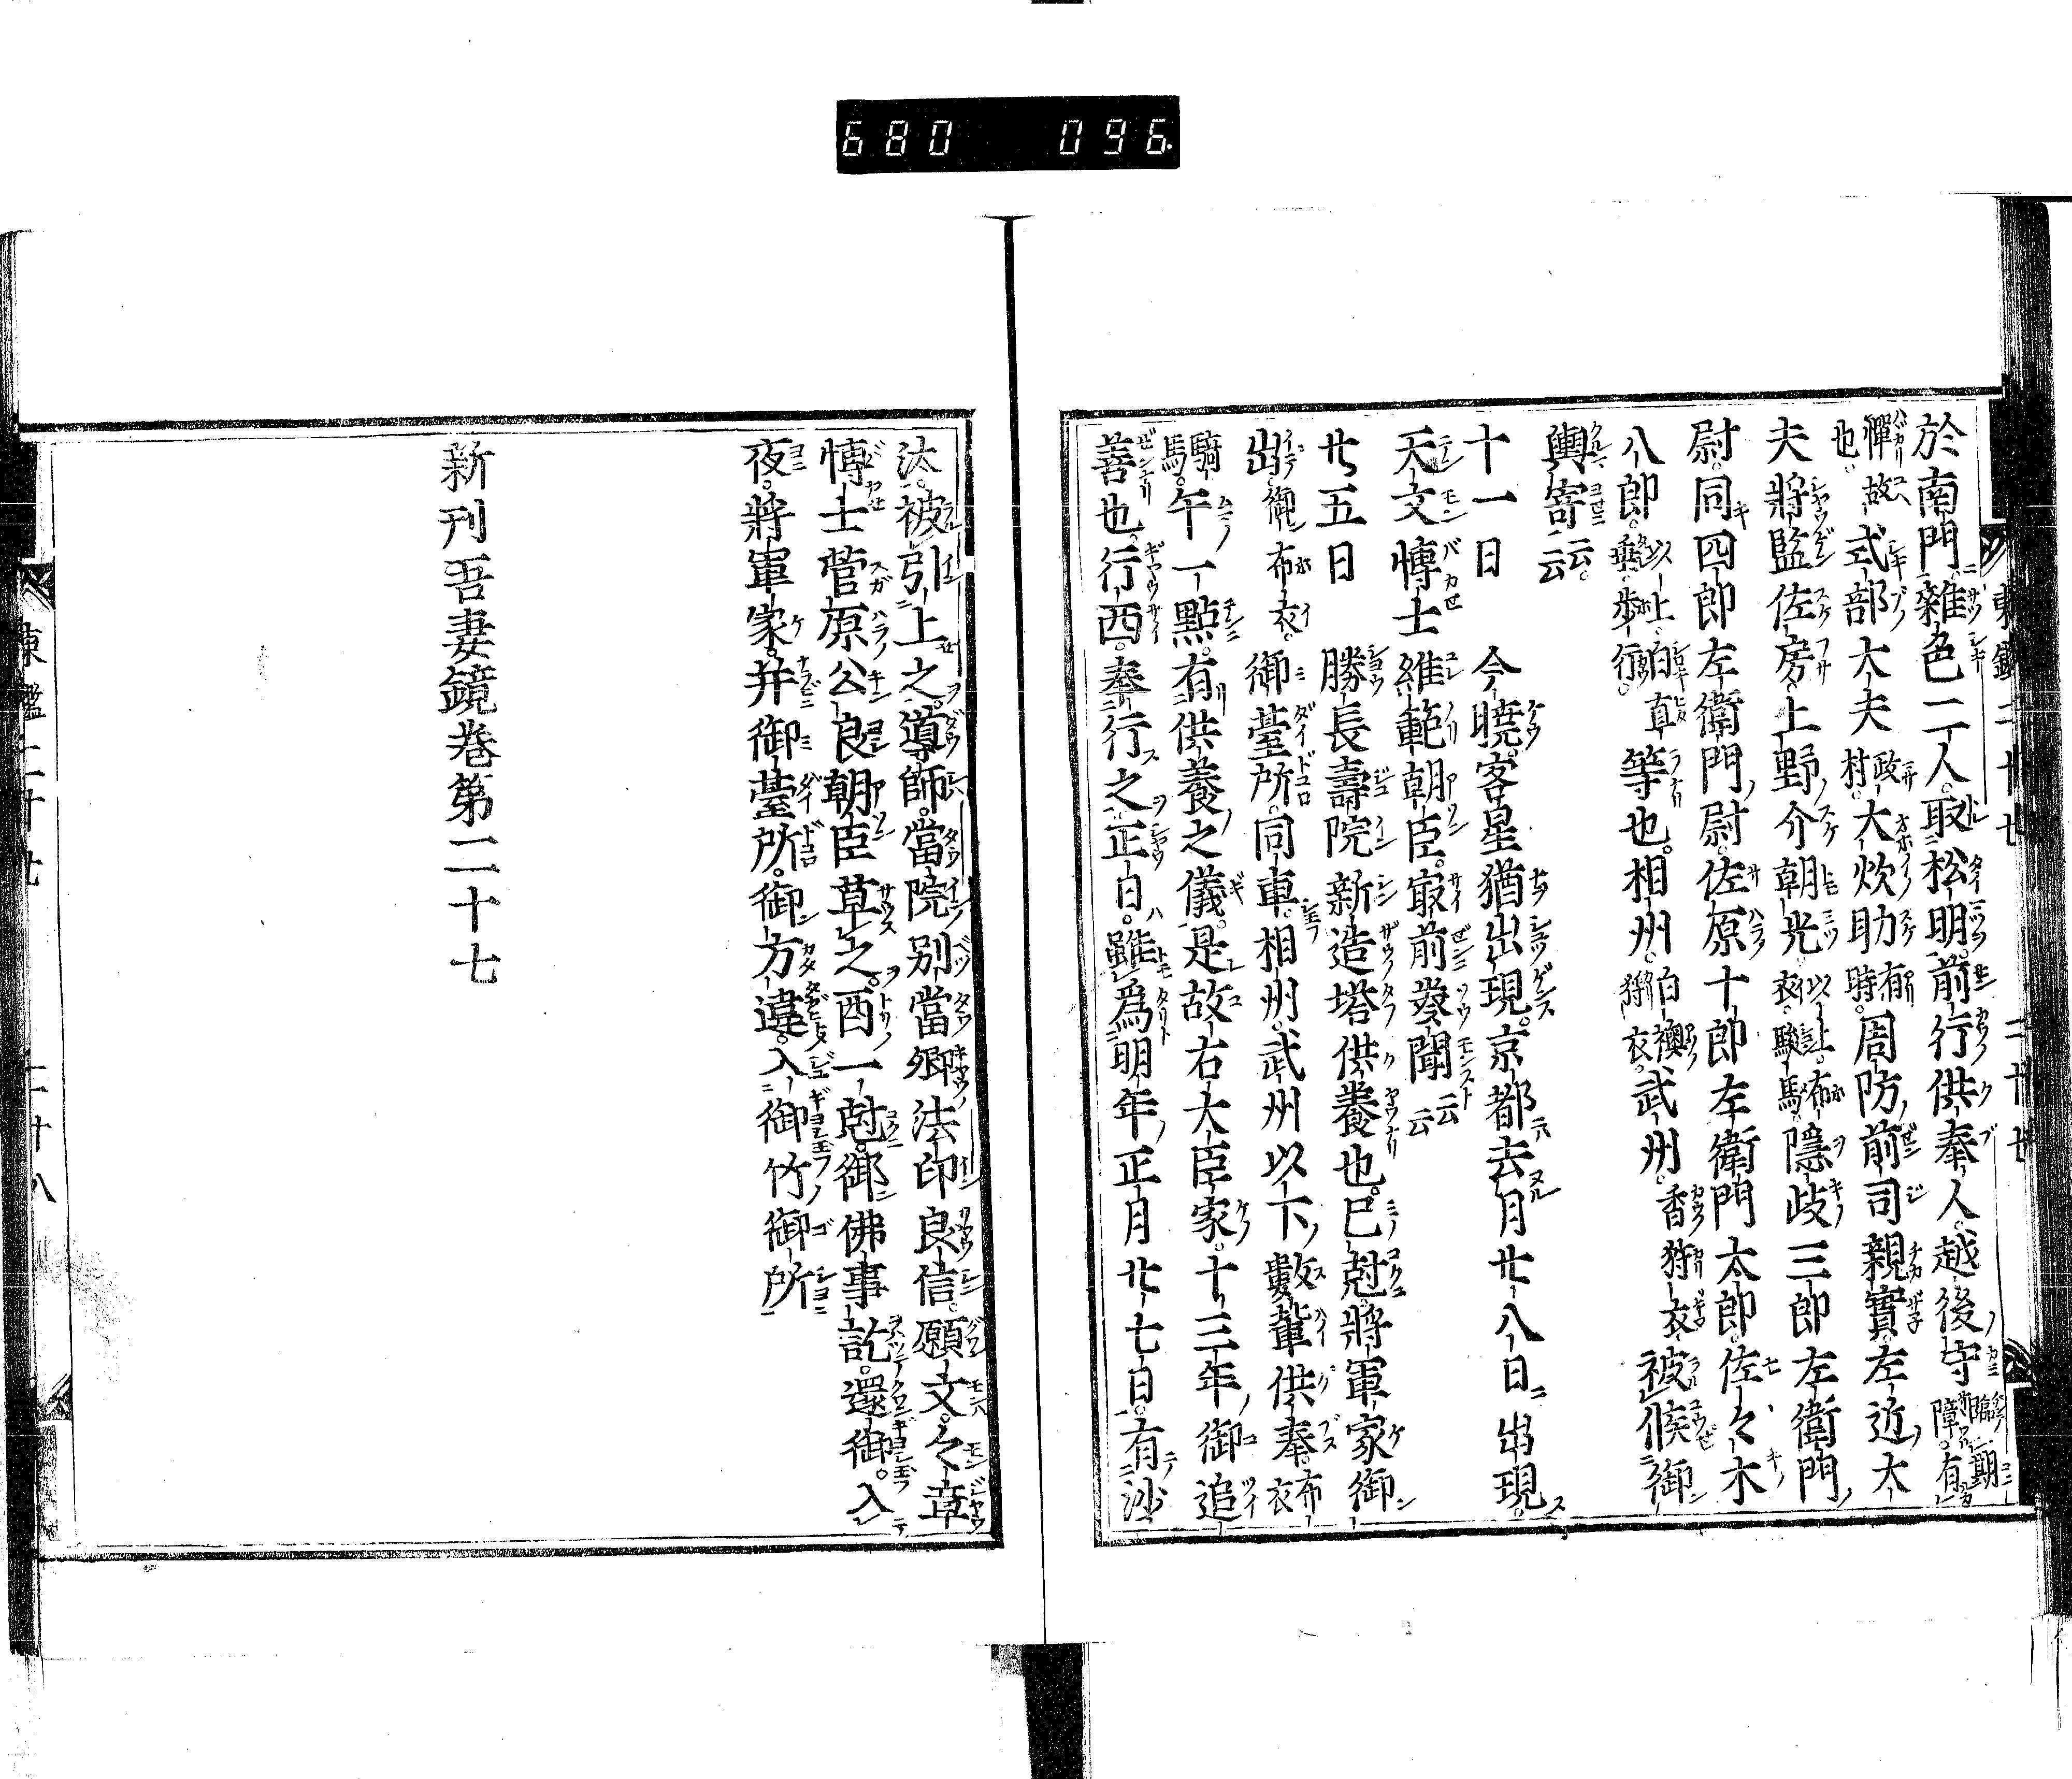 680 096
於南門。雜色二人。取松明。前行供奉人。越後守臨期障。有
憚故也。式部大夫政村。大炊助有時。周防前司親實。左近大
夫將監佐房。上野介朝光以上布衣。駿馬。隱岐三郎左衛門
尉。同四郎左衛門尉。佐原十郎左衛門太郎。佐々木
八郎。以上白直垂。歩行。等也。相州。白襖狩衣。武州。香狩衣被候御
輿寄云云。
十一日 今曉。客星猶出現。京都去月廿八日出現。
天文博士維範朝臣。最前發聞云云
廿五日 勝長壽院新造塔供養也。巳尅。將軍家御
出。御布衣。御臺所。同車。相州。武州以下數輩供奉。布衣
騎馬。午一點。有供養之儀。是故右大臣家。十三年御追
善也。行西。奉行之。正日。雖爲明年正月廿七日。有沙
汰。被引上之。導師。當院別當卿法印良信。願文。々章
博士菅原公良朝臣草之。酉一尅。御佛事訖。還御。入
夜。將軍家。并御臺所。御方違。入御竹御所
新刊吾妻鏡卷第二十七